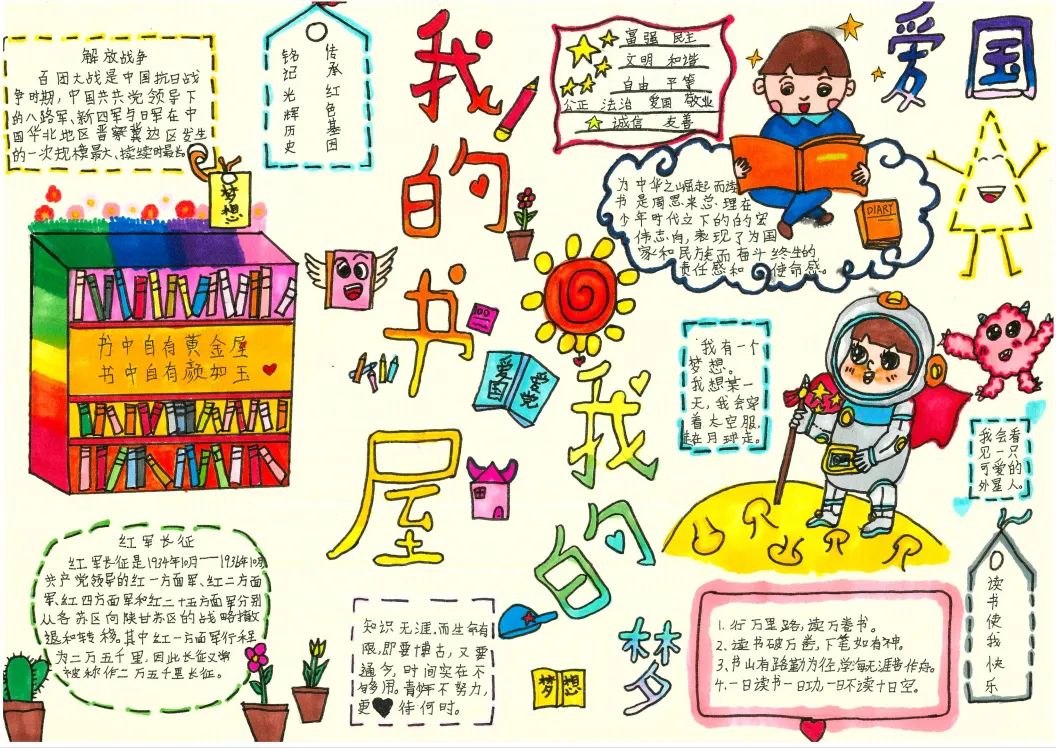 解放战争
百团大战是中国抗日战
争时期，中国共共党领导下
的八路军、新四军与日军在中
国华北地区晋察冀边区发生
的一次规模最大、持续时最长
梦想
传承红色基因
铭记光辉历史
我的书屋
我的梦
富强 民主
文明 和谐
自由 平等
公正 法治 爱国 敬业
诚信 友善
爱国
为中华之崛起而读
书是周恩来总理在
少年时代立下的的宏
伟志向，表现了为国
家和民族而奋斗终生的
责任感和使命感。
DIARY
书中自有黄金屋
书中自有颜如玉
100
爱国
爱党
我有一个
梦想。
我想某一
天，我会穿
着太空服，
在月球走。
我会看
见一只
可爱的
外星人。
读书使我快乐
红军长征
红军长征是1934年10月——1936年10月
共产党领导的红一方面军、红二方面
军、红四方面军和红二十五方面军分别
从各苏区向陕甘苏区的战略撤
退和转移。其中红一方面军行程
为二万五千里，因此长征又常
被称作二万五千里长征。
知识无涯，而生命有
限，即要博古，又要
通今，时间实在不
够用。青少年不努力，
更待何时。
梦想
1.行万里路，读万卷书。
2.读书破万卷，下笔如有神。
3.书山有路勤为径，学海无涯苦作舟。
4.一日读书一日功，一日不读十日空。